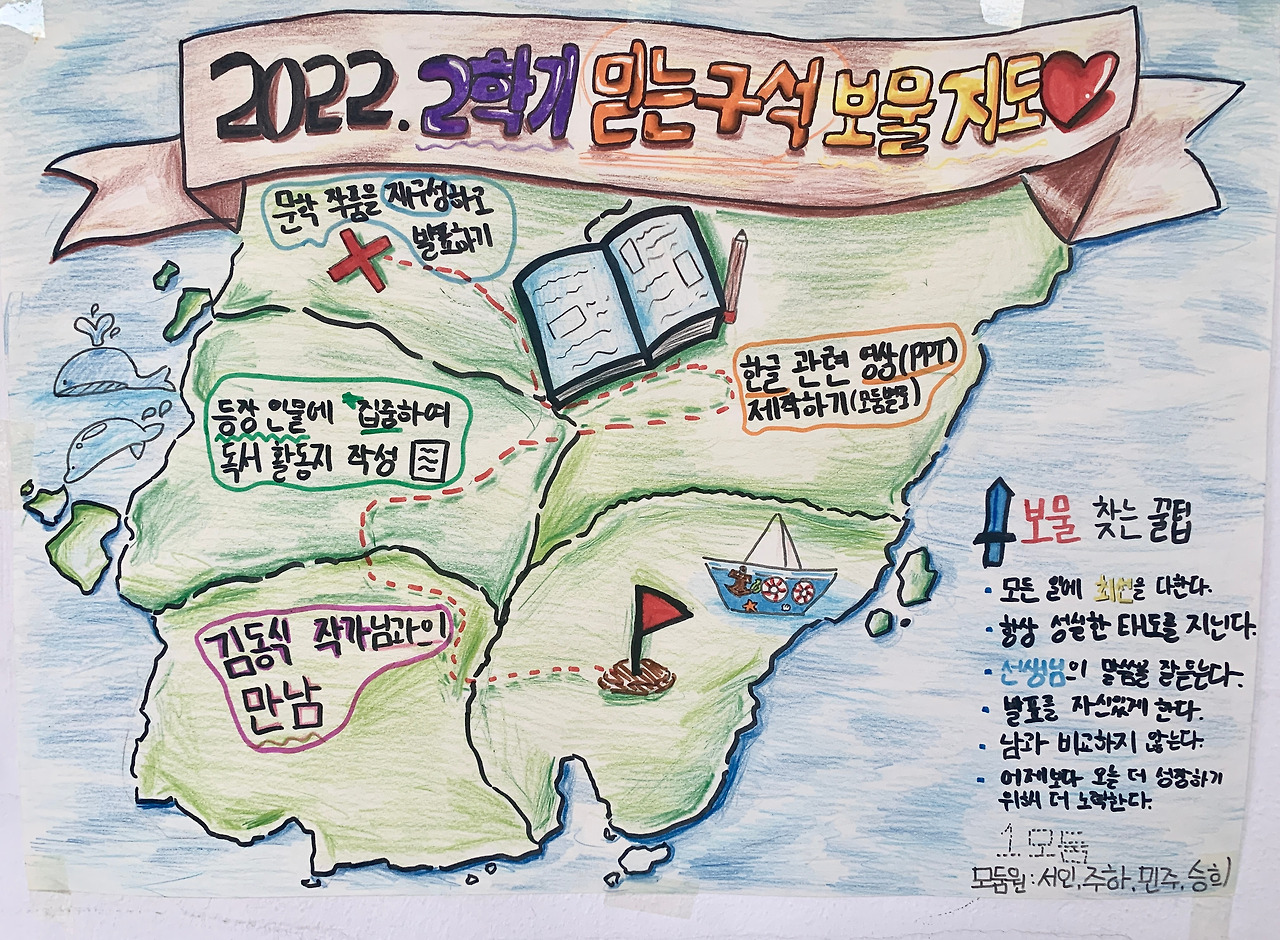 2022. 2학기 믿는구석 보물지도
문학 작품을 재구성하고
발표하기
한글 관련 영상(PPT)
제작하기(모둠발표)
등장 인물에 집중하여
독서 활동지 작성
김동식 작가님과의
만남
보물 찾는 꿀팁
· 모든 일에 최선을 다한다.
· 항상 성실한 태도를 지닌다.
· 선생님의 말씀을 잘 듣는다.
· 발표를 자신있게 한다.
· 남과 비교하지 않는다.
· 어제보다 오늘 더 성장하기
위해 더 노력한다.
1모둠
모둠원 : 서인, 주하, 민주, 승희